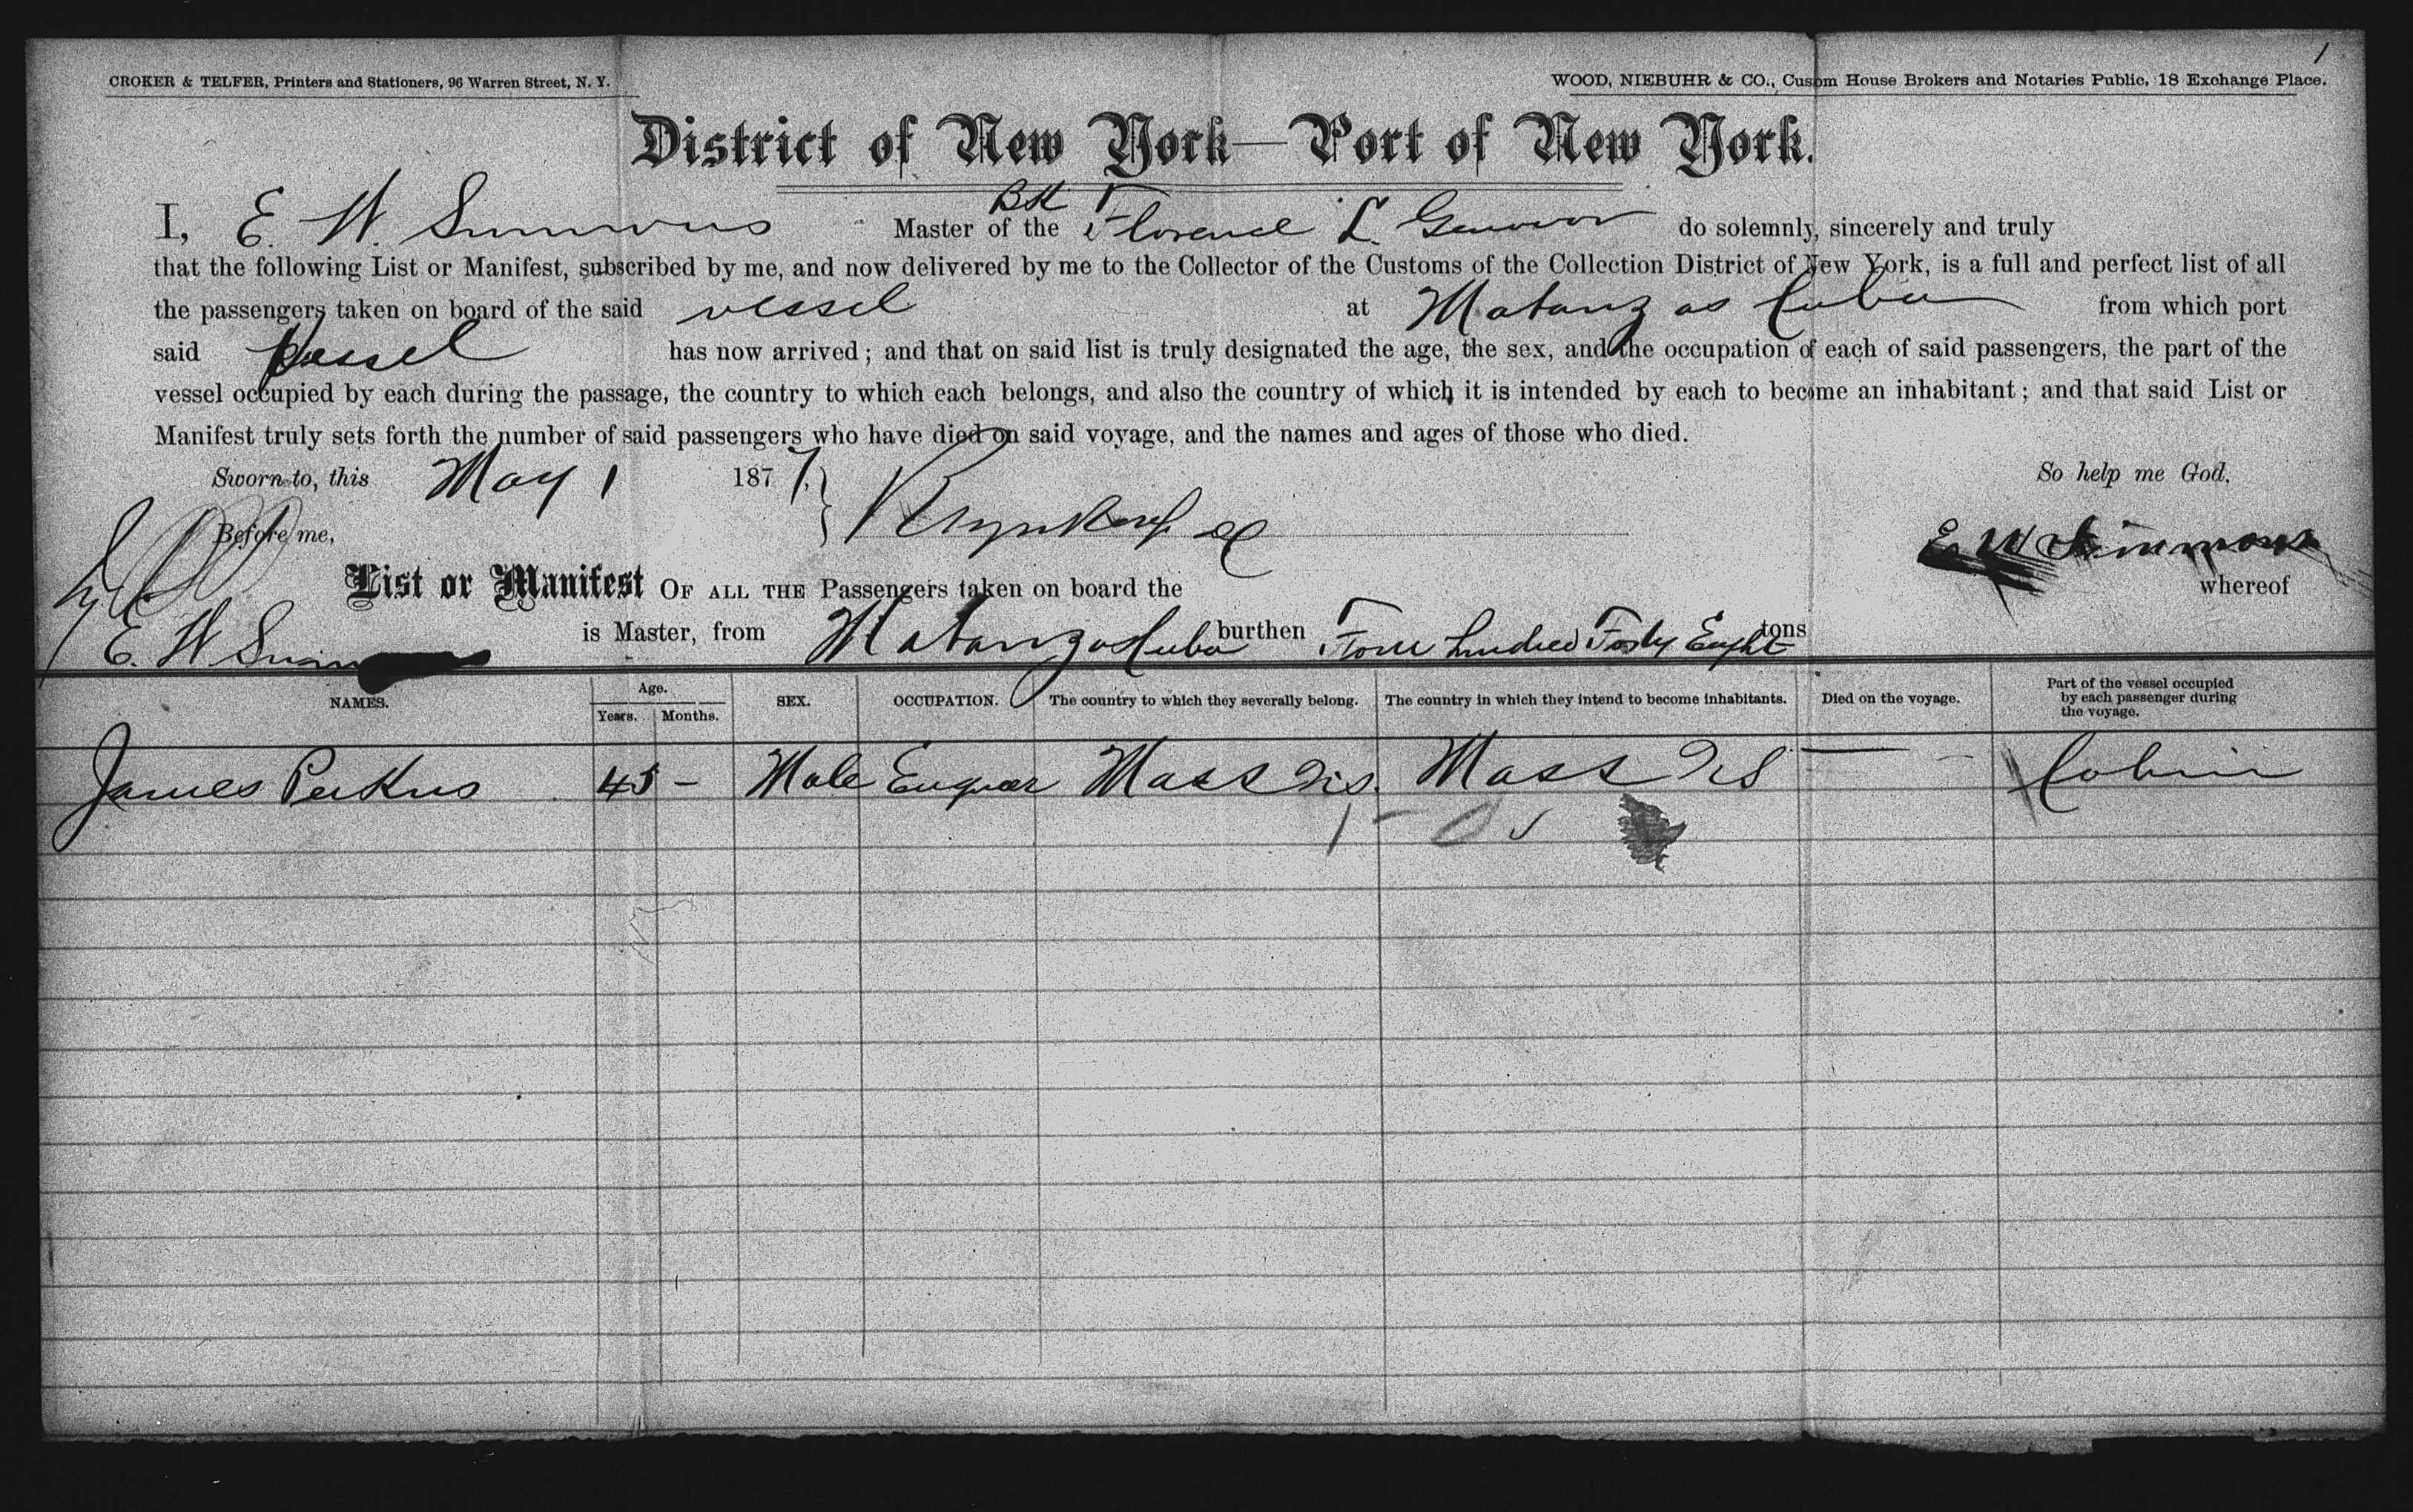 1
CROKER & TELFER, Printers and Stationers, 96 Warren Street, N. Y.
WOOD, NIEBUHR & CO., Cusom House Brokers and Notaries Public, 18 Exchange Place.
District of New York—Port of New York.
I, E. W. Simmons Master of the Bk Florence L. do solemnly, sincerely and truly
that the following List or Manifest, subscribed by me, and now delivered by me to the Collector of the Customs of the Collection District of New York, is a full and perfect list of all
the passengers taken on board of the said vessel at Matanzas Cuba from which port
said vessel has now arrived; and that on said list is truly designated the age, the sex, and the occupation of each of said passengers, the part of the
vessel occupied by each during the passage, the country to which each belongs, and also the country of which it is intended by each to become an inhabitant; and that said List or
Manifest truly sets forth the number of said passengers who have died on said voyage, and the names and ages of those who died.
Sworn to, this May 1 1877, So help me God,
Before me, E W Simmons
List or Manifest OF ALL THE Passengers taken on board the whereof
E. W Simmons is Master, from Matanzas Cuba burthen Four hundred Forty Eight tons
NAMES. Age. Years. Months. SEX. OCCUPATION. The country to which they severally belong. The country in which they intend to become inhabitants. Died on the voyage. Part of the vessel occupied by each passenger during the voyage.
James Perkins 45 - Male Engineer Mass US. Mass US — Cabin